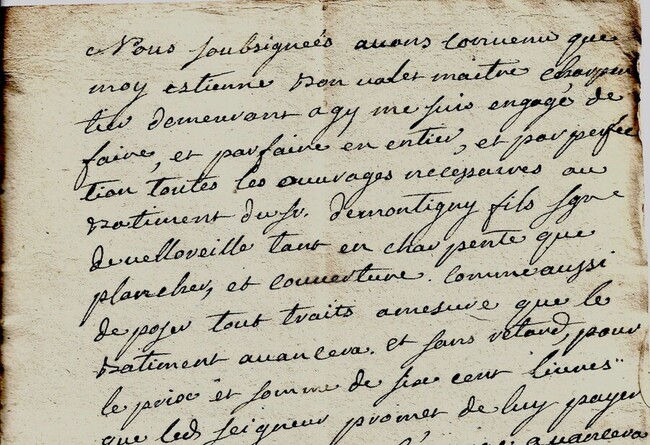 Nous soubsignees avons convenu que
moy estienne bon valet maitre charpen
tier demeurant a gy me suis engagé de
faire, et parfaire en entier, et par perfec
tion toutes les ouvrages necessaires au
batiment du sr. demontigny fils sgne
de velloreille tant en charpente que
plancher, et couverture. Comme aussi
de poser tout traits amesure que le
batiment avancera. et sans retard, pour
le prix et somme de six cent livres
que led seigneur promet de luy payer
avancera